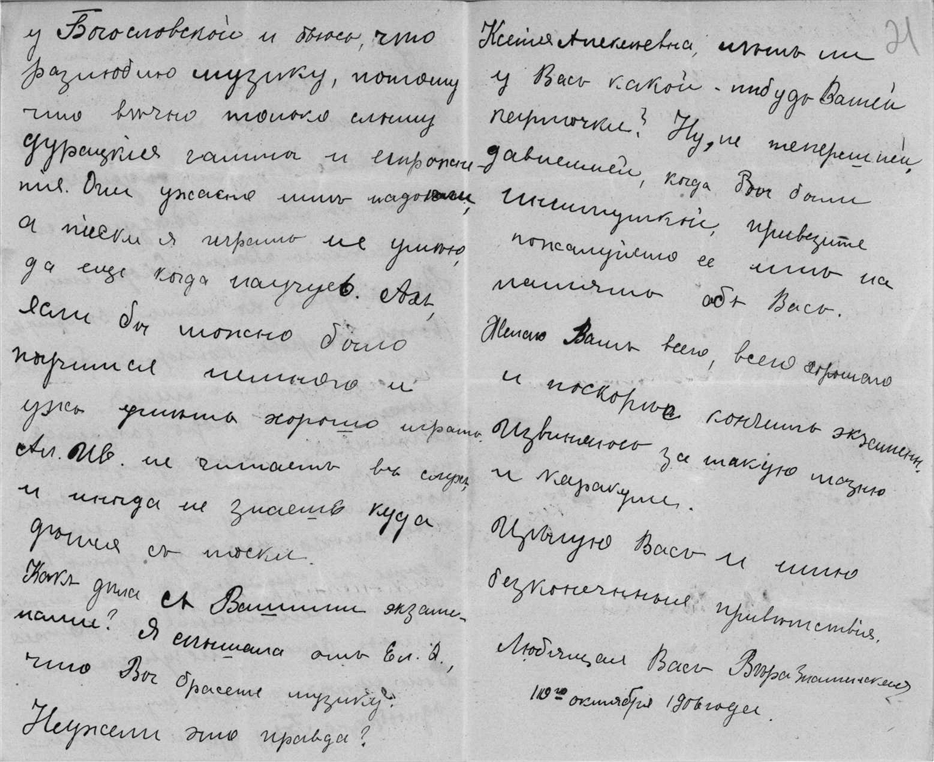 у Богословской и боюсь, что
разлюблю музыку, потому
что вѣчно только слышу
дурацкiя гаммы и упражне-
нiя. Они ужасно мнѣ надоели,
а пьески я играть не умѣю,
да еще когда научусь. Ахъ,
если бы можно было
поучится немного и
ужъ умѣть хорошо играть.
Ал. Ив. не читаетъ въ слухъ,
и иногда не знаешь куда
дѣтся съ тоски.
Какъ дѣла съ Вашими экзаме-
нами? Я слышала отъ Ел. А.,
что Вы бросаете музику?
Неужели это правда?
21
Ксенiя Алексеевна, нѣтъ ли
у Васъ какой-нибудь Вашей
карточки? Ну, не теперешней,
давнешней, когда Вы были
институткой, привезите
пожалуйста ее мнѣ на
память объ Васъ.
Желаю Вамъ всего, всего хорошаго
и поскорѣе кончить экзамены.
Извиняюсь за такую мазню
и каракули.
Цѣлую Васъ и шлю
безконечныя привѣтствiя.
Любящая Васъ Вѣра
10го октября 1906 года.